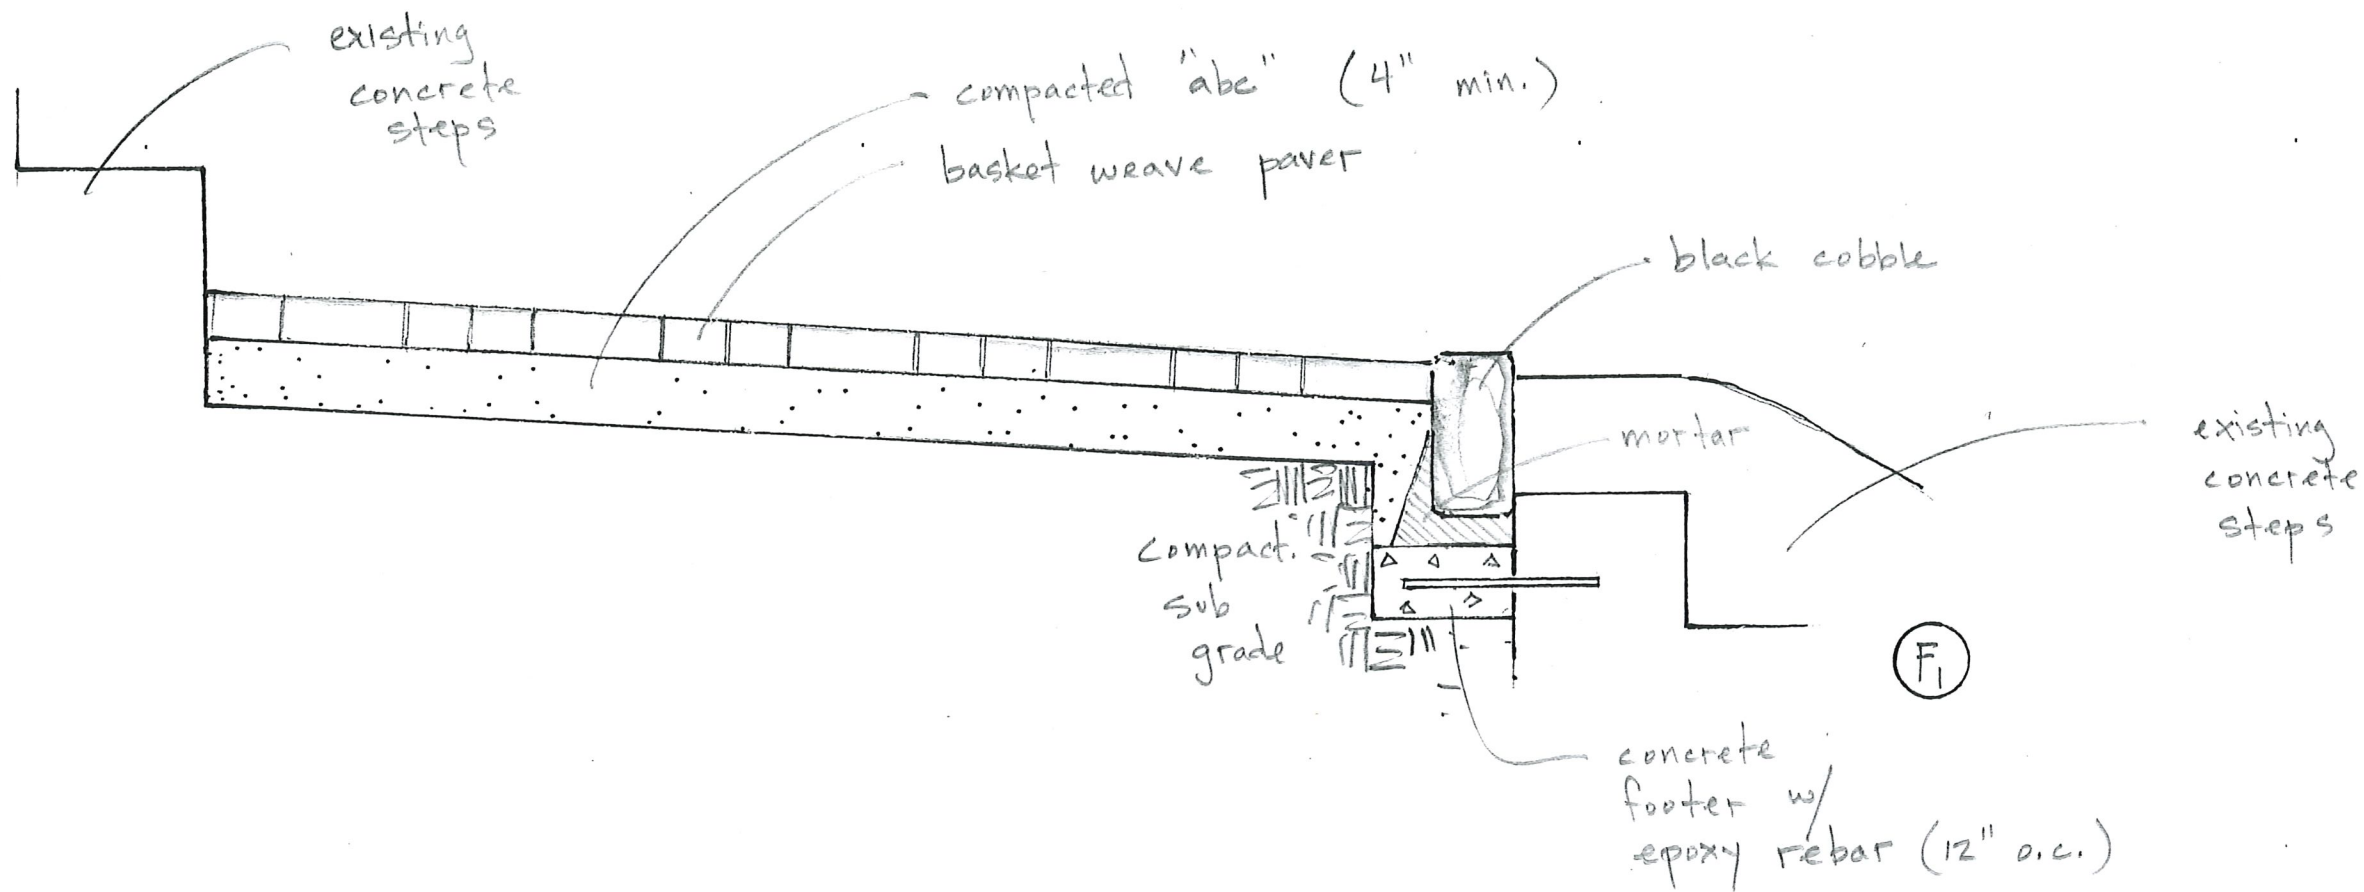 existing
concrete
steps
compacted "abc" (4" min.)
basket weave paver
black cobble
mortar
existing
concrete
steps
compact.
sub
grade
F1
concrete
footer w/
epoxy rebar (12" o.c.)